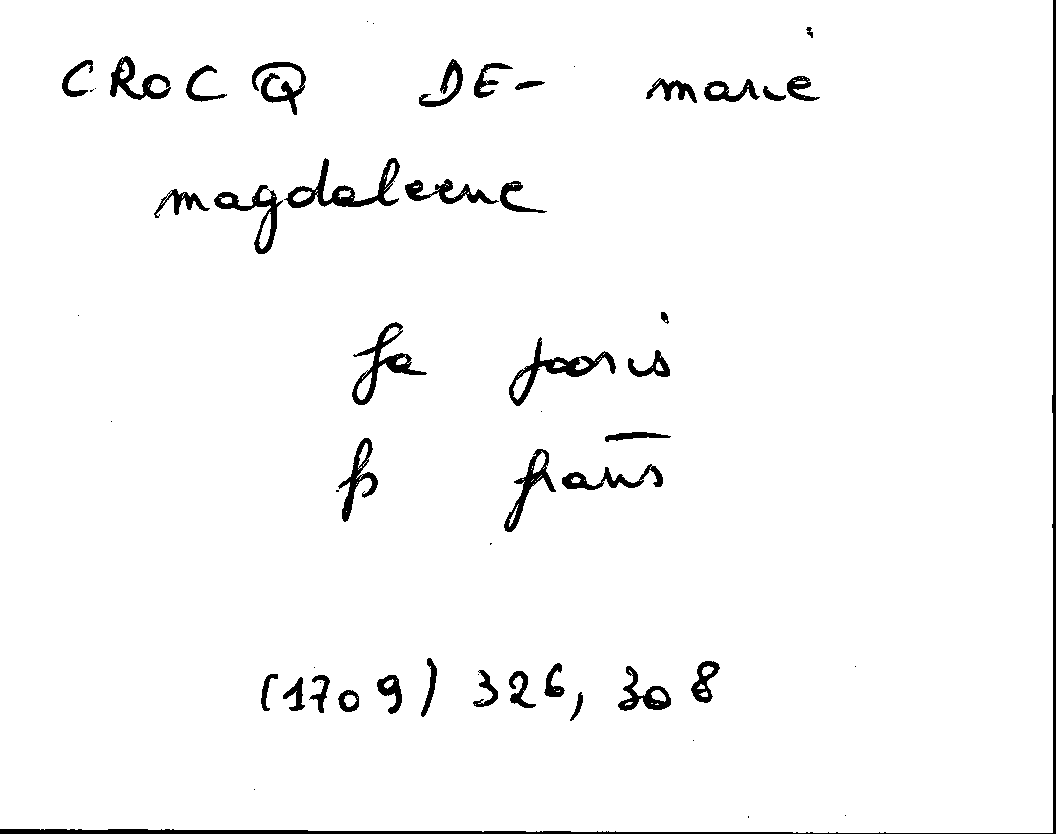 CROCQ DE- marie
magdaleene
fa jooris
p frans
(1709) 326, 308